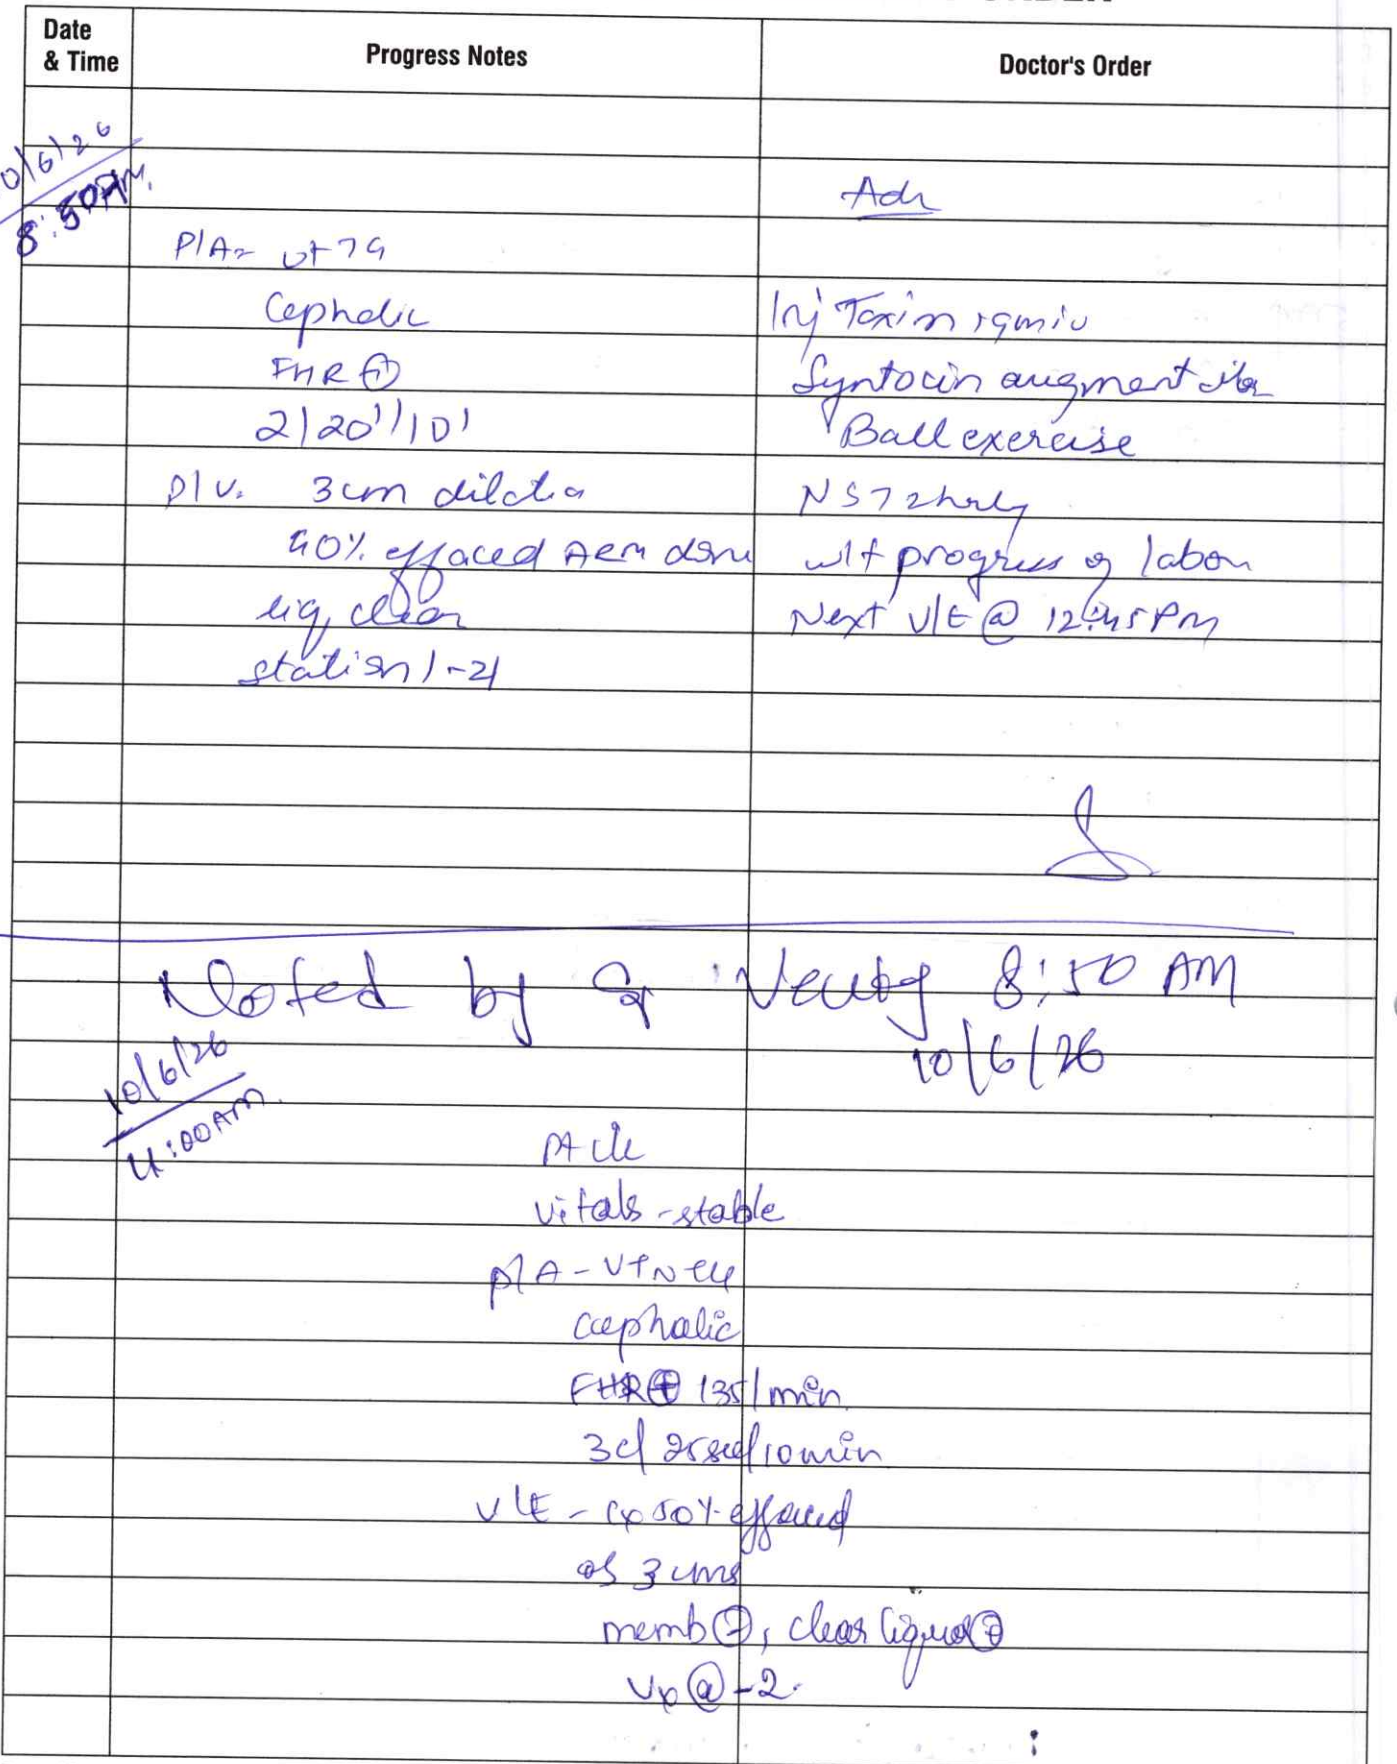 Date & Time
Progress Notes
Doctor's Order
0/6/26
8:50AM.
Adv
P/A-
Cephalic
Inj Taxim 1gm iv
FHR ⊕
Syntocin augment
2/20"/10'
Ball exercise
P/V. 3cm
NST 2hrly
effaced ARM done
w/f progress of labor
liq, clear
Next V/E @ 12:45 PM
station/-2/
Noted by Sr 8:50 AM
10/6/26
10/6/26
:00AM.
vitals - stable
P/A -
cephalic
FHR ⊕ 135/min
3c/ 25sec/10min
V/E - Cx 50% effaced
os 3 cms
memb, clear liquor
Vx @ -2.